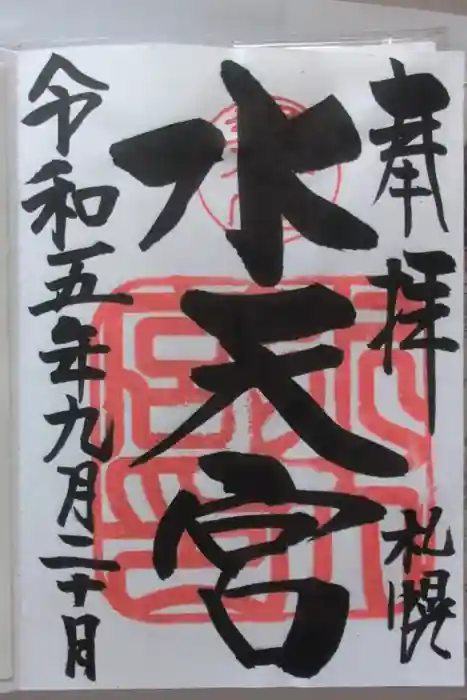 奉拝 札幌
水天宮
令和五年九月二十日